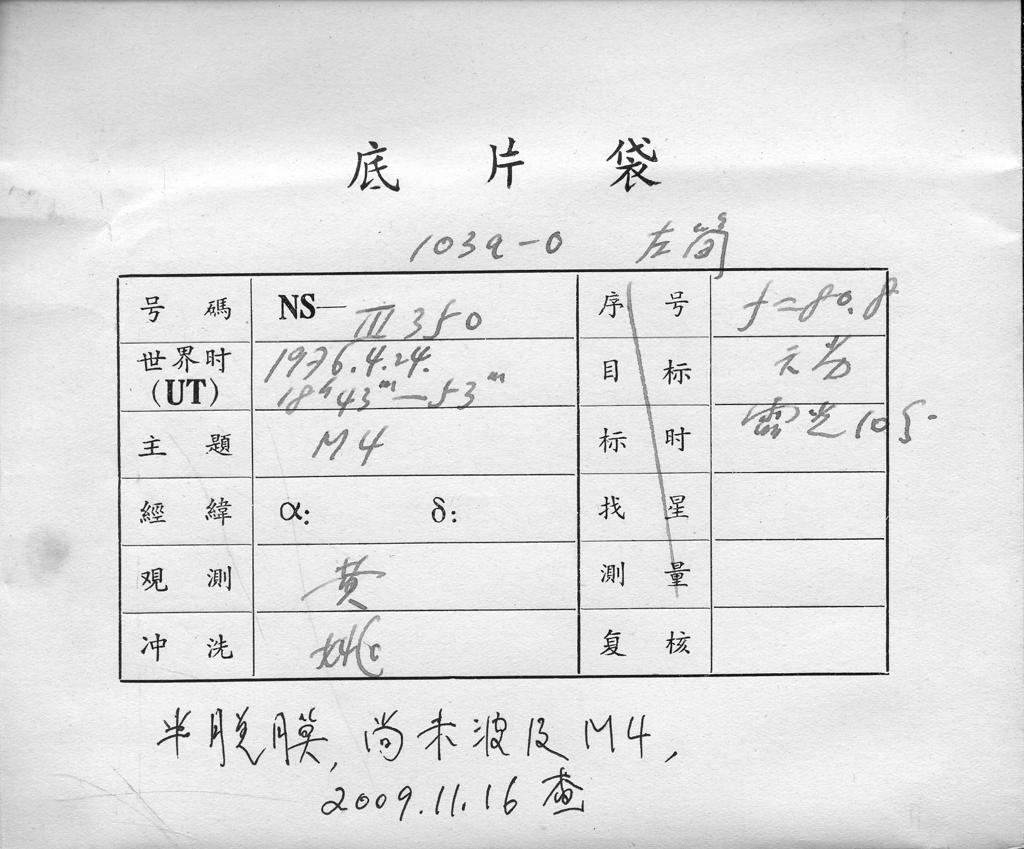 底 片 袋
103a-0 左筒
号 碼 NS— III 350 序 号 f=80.8
世界时 (UT) 1976.4.24. 18h43m—53m 目 标
主 題 M4 标 时 露光10分
經 緯 α: δ: 找 星
观 測 黄 測 量
冲 洗 复 核
半脱膜,尚未波及M4,
2009.11.16 查